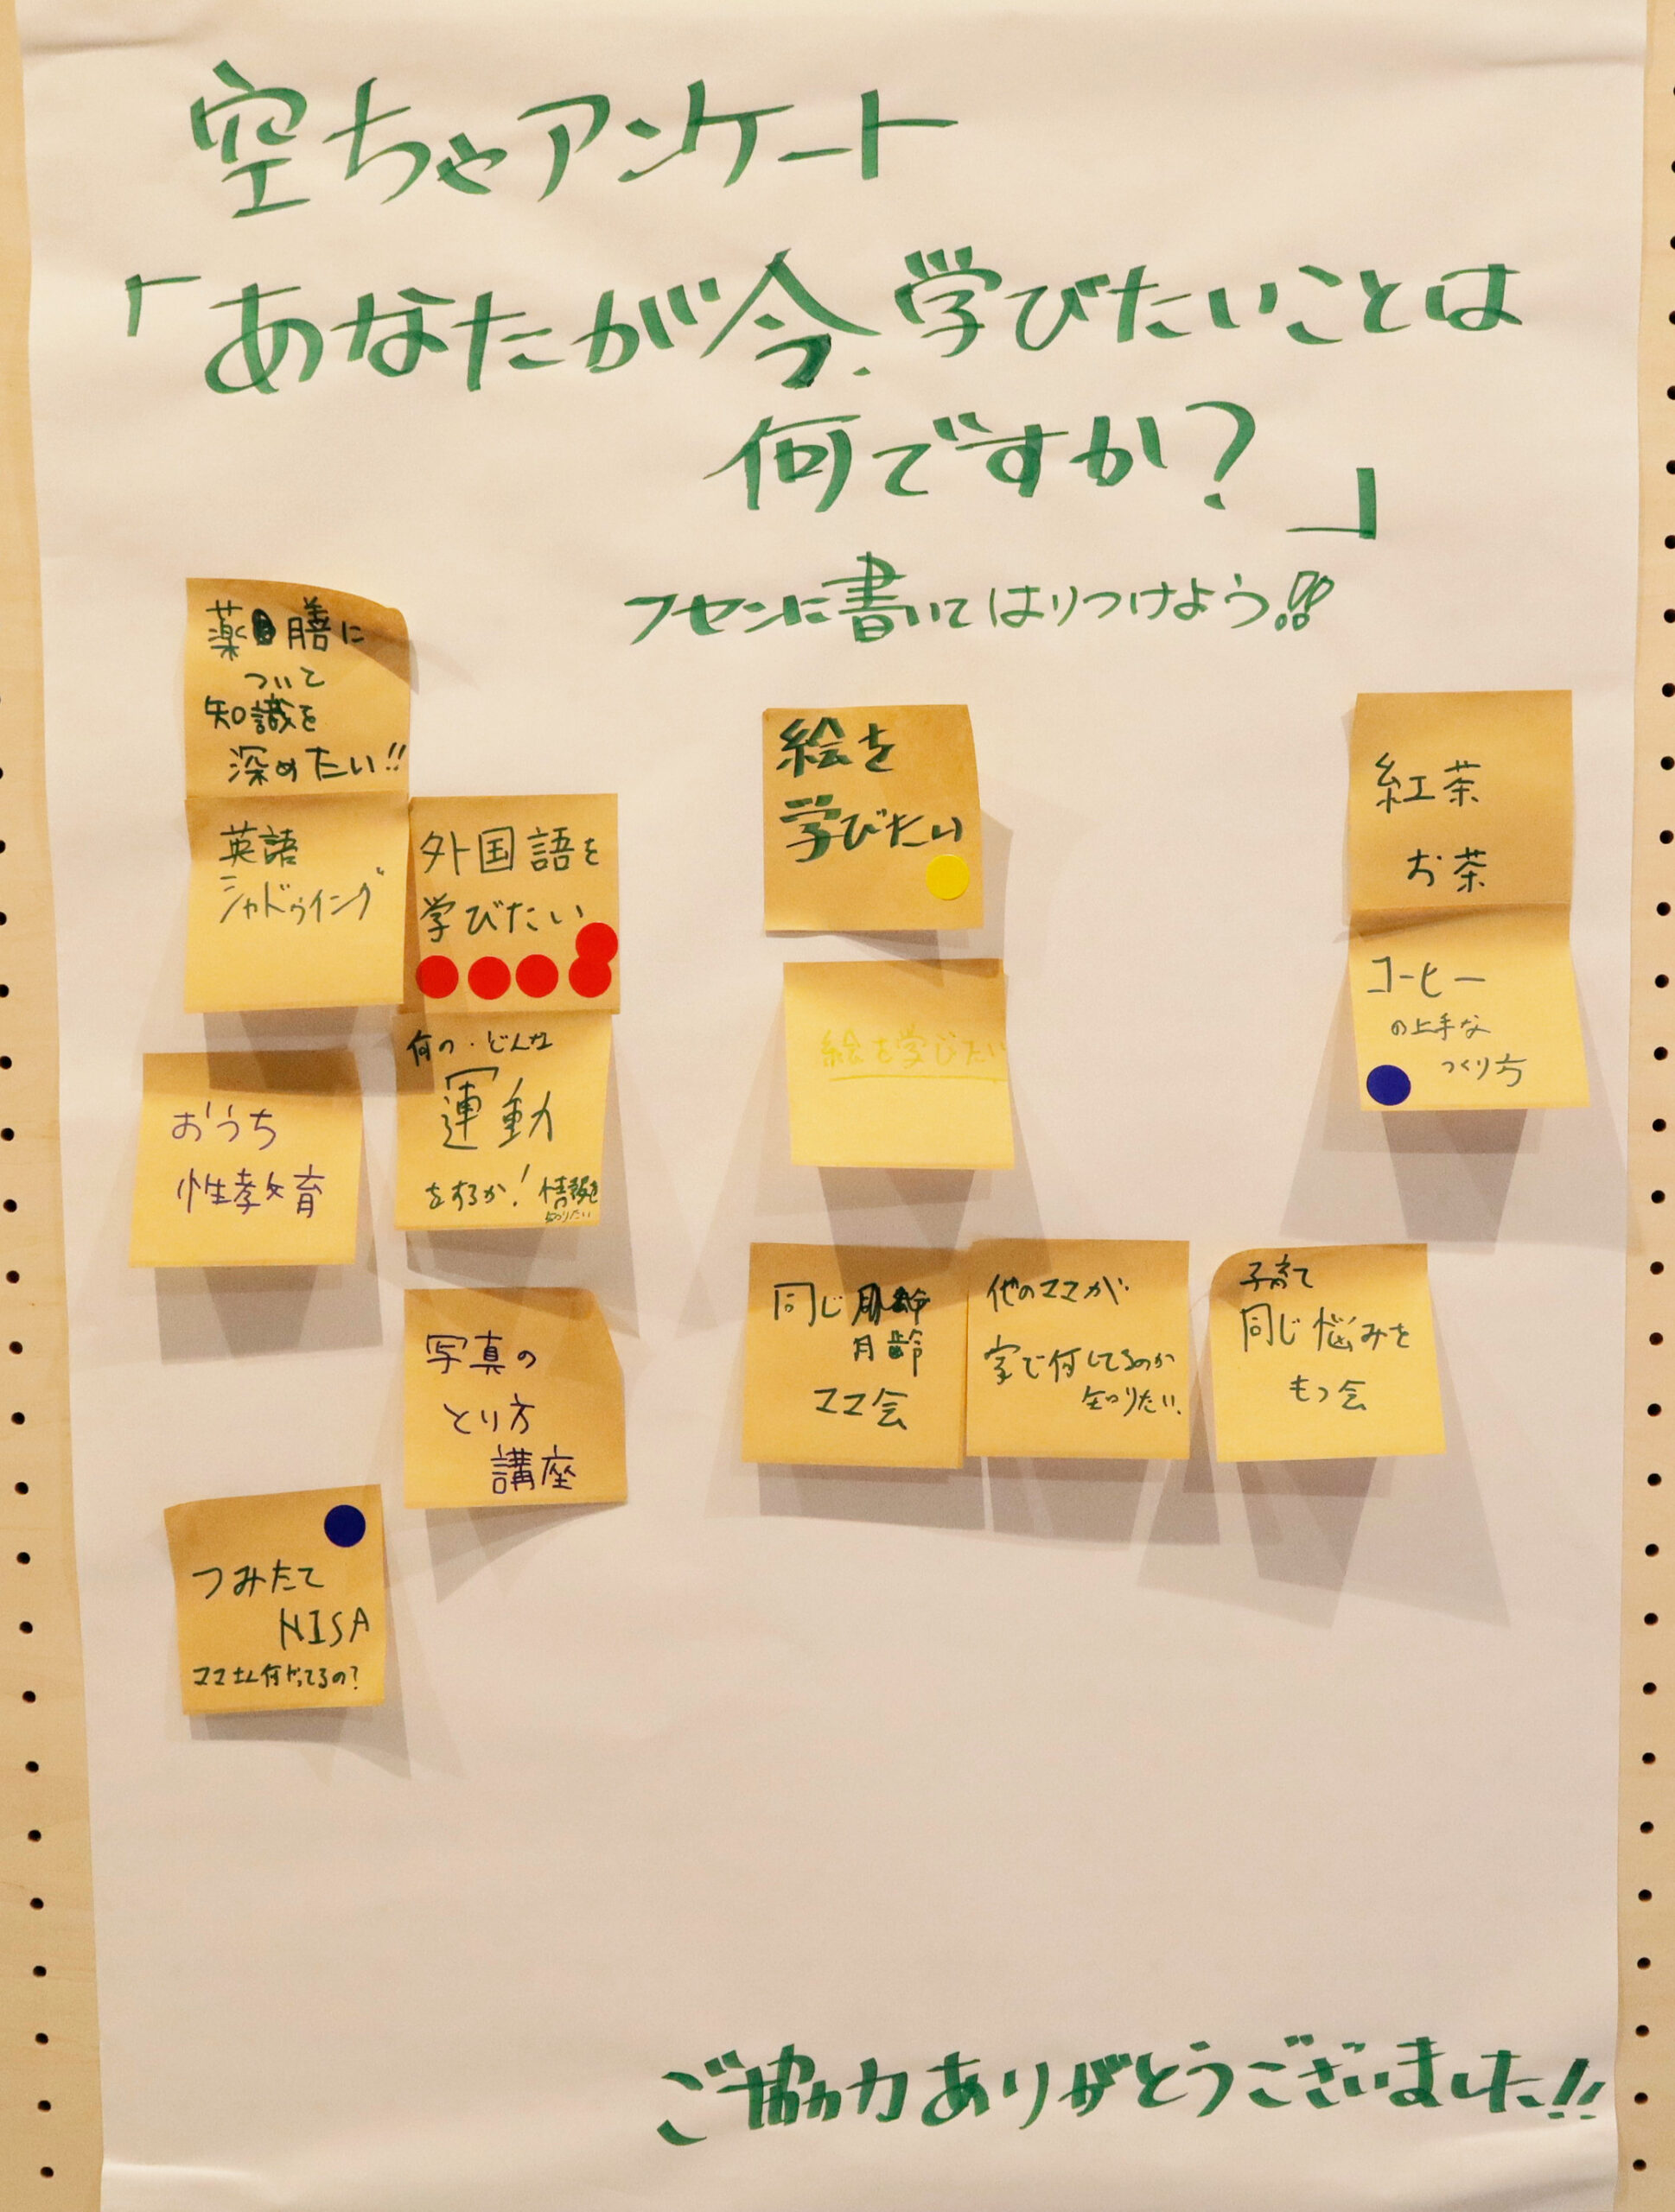 空ちゃアンケート
「あなたが今、学びたいことは
何ですか?」
フセンに書いてはりつけよう!!
薬膳に
ついて
知識を
深めたい!!
英語
シャドウイング
外国語を
学びたい
何の・どんな
運動
をするか!情報を
知りたい
おうち
性孝女育
写真の
とり方
講座
つみたて
NISA
ママ達何やってるの?
絵を
学びたい
絵を学びたい
同じ
月齢
ママ会
他のママが
家で何してるのか
知りたい.
子育て
同じ悩みを
もつ会
紅茶
お茶
コーヒー
の上手な
つくり方
ご協力ありがとうございました!!